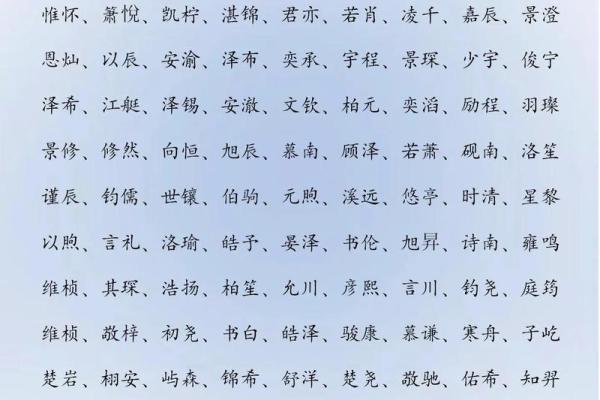 惟怀、萧悦、凯柠、湛锦、君亦、若肖、凌千、嘉辰、景澄
恩灿、以辰、安渝、泽布、奕承、宇程、景琛、少宇、俊宁
泽希、江艇、泽锡、安澈、文钦、柏元、奕滔、励程、羽璨
景修、修然、向恒、旭辰、慕南、顾泽、若萧、砚南、洛笙
谨辰、钧儒、世镶、伯驹、元煦、溪远、悠亭、时清、星黎
以煦、言礼、洛瑜、皓予、晏泽、书伦、旭昇、诗南、雍鸣
维桢、其琛、浩扬、柏笙、允川、彦熙、言川、钧尧、庭筠
维桢、敬梓、初尧、书白、皓泽、骏康、慕谦、寒舟、子屹
楚岩、栩安、屿森、锦希、舒洋、楚尧、敬驰、佑希、知羿